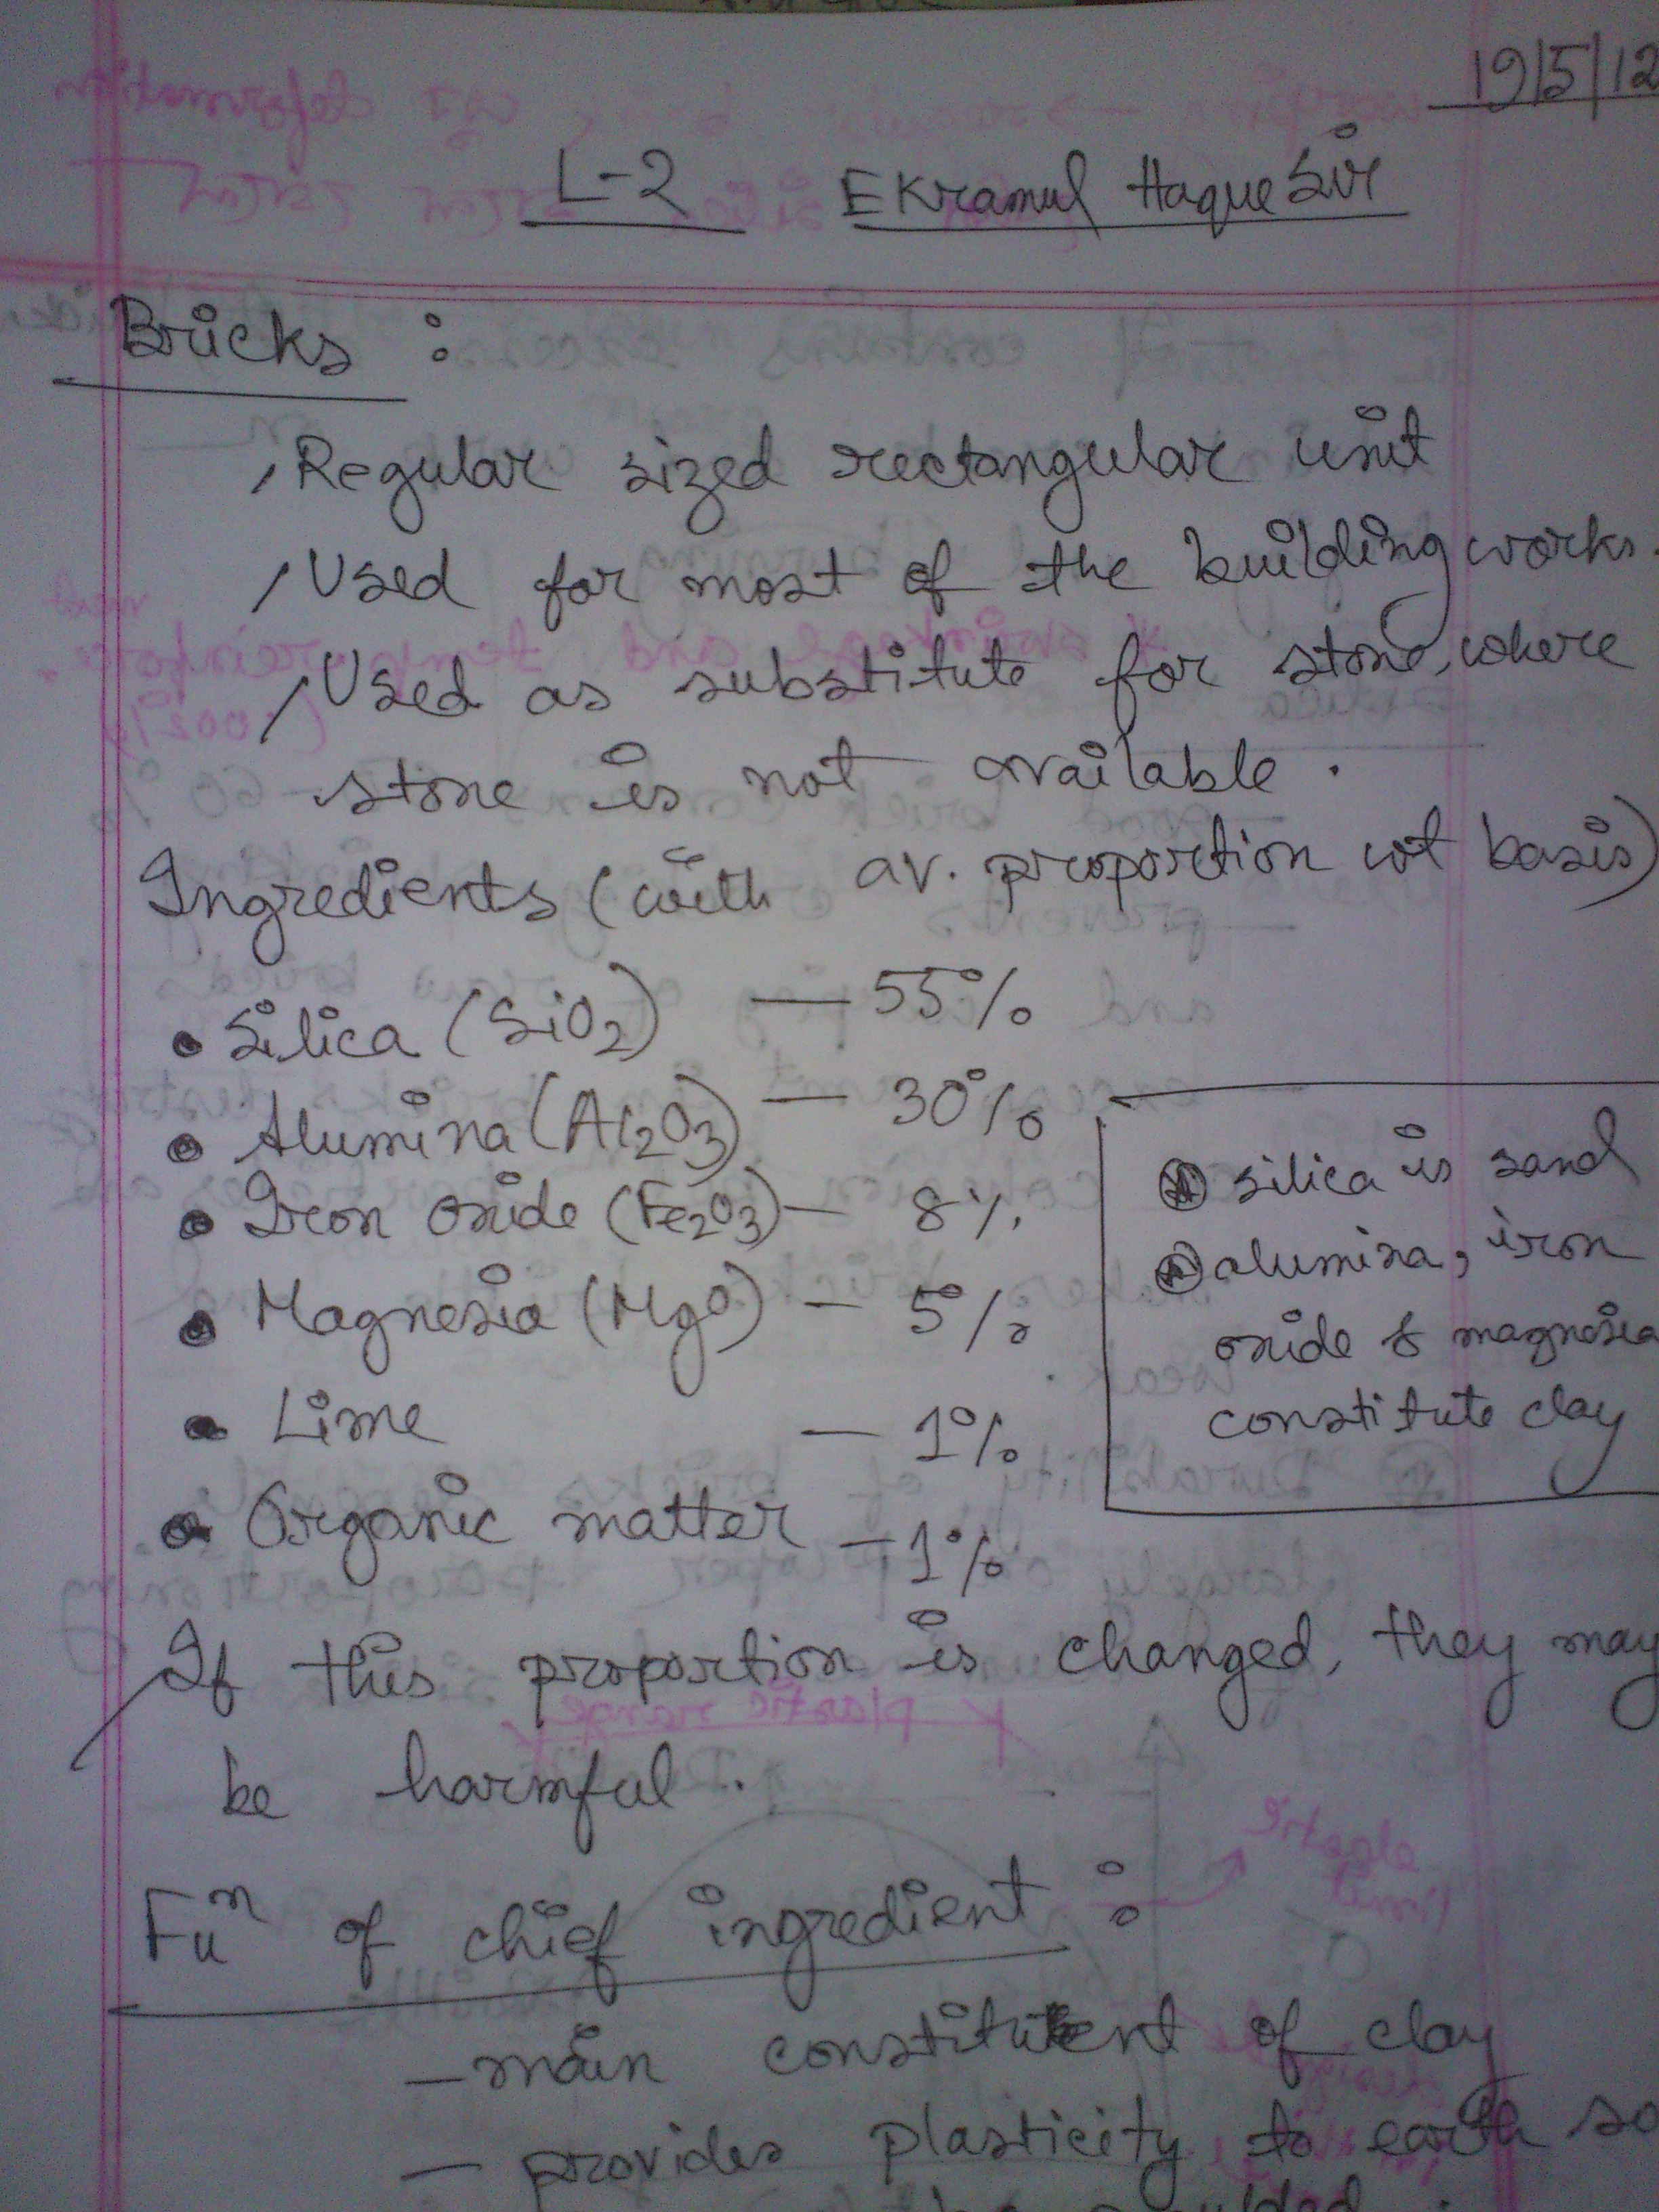 19/5/12
L-2 Ekramul Haque Sir
Bricks :
Regular sized rectangular unit
Used for most of the building works.
Used as substitute for stone, where
stone is not available.
Ingredients (with av. proportion wt basis)
• Silica (SiO2) — 55%
• Alumina (Al2O3) — 30%
• Iron oxide (Fe2O3) — 8%
• Magnesia (MgO) — 5%
• Lime — 1%
• Organic matter — 1%
silica is sand
alumina, iron
oxide & magnesia
constitute clay
If this proportion is changed, they may
be harmful.
Fuⁿ of chief ingredient :
— main constituent of clay
— provides plasticity to earth so